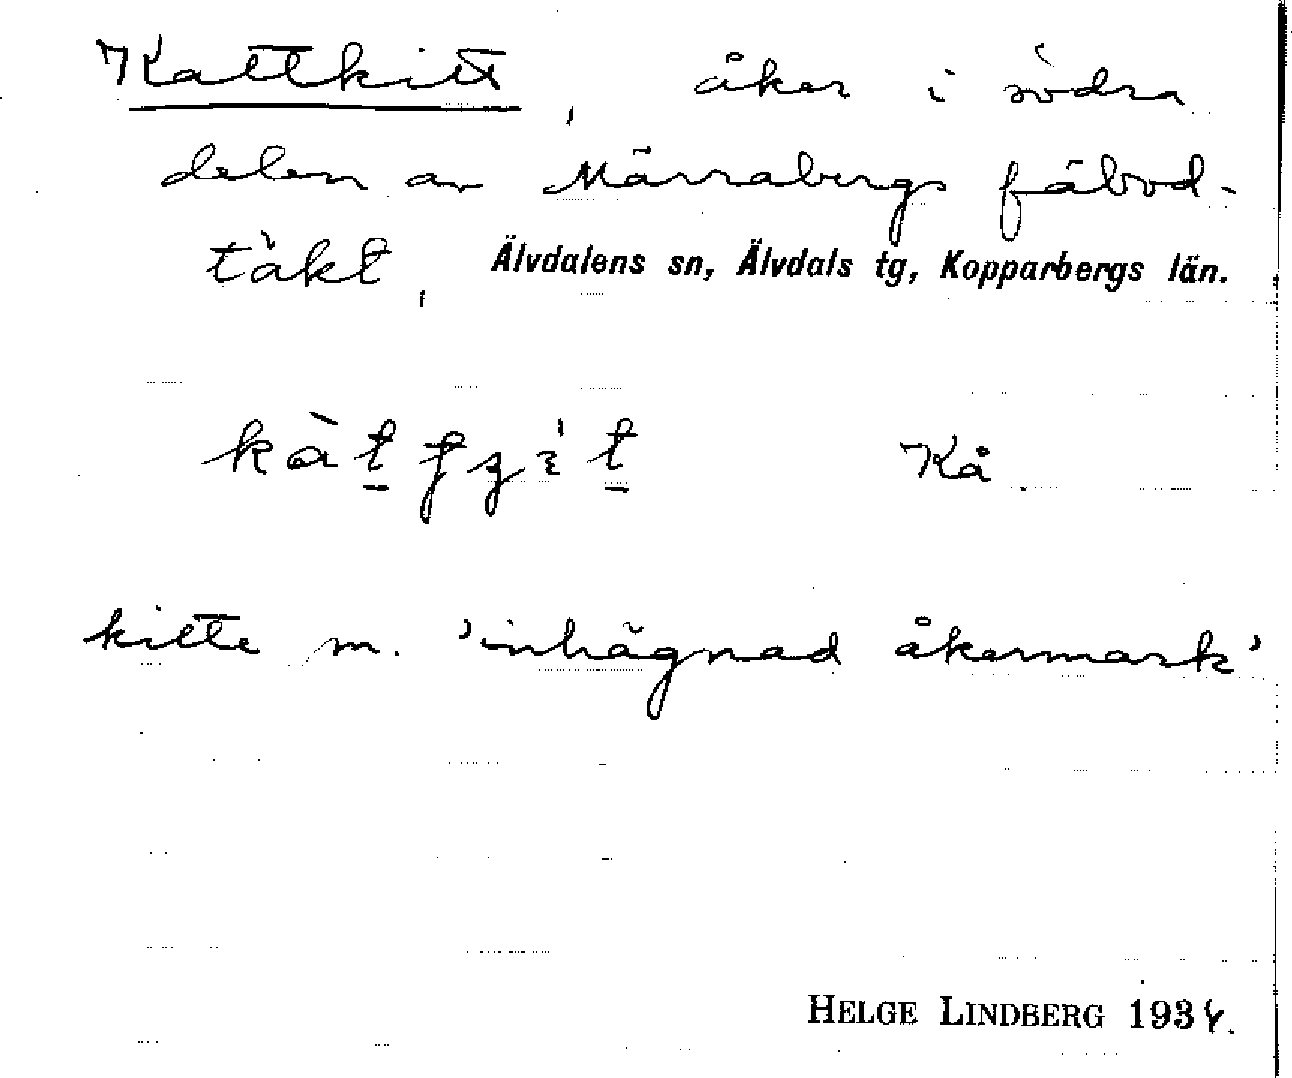 Kattkitt, åker i södra
delen av Märrabergs fäbod-
täkt, Älvdalens sn, Älvdals tg, Kopparbergs län.
Kå.
kitte m. 'inhägnad åkermark'
HELGE LINDBERG 1934.